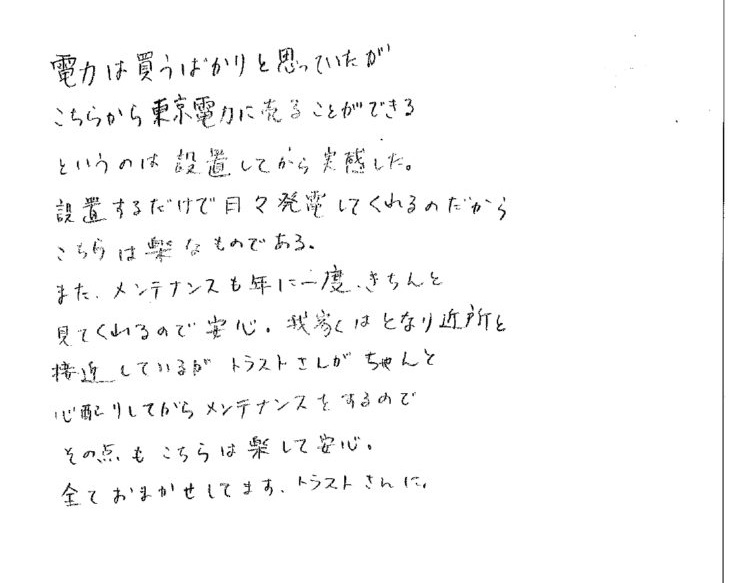 電力は買うばかりと思っていたが
こちらから東京電力に売ることができる
というのは設置してから実感した。
設置するだけで日々発電してくれるのだから
こちらは楽なものである。
また、メンテナンスも年に一度、きちんと
見てくれるので安心。我家はとなり近所と
接近しているがトラストさんがちゃんと
心配りしてがらメンテナンスをするので
その点もこちらは楽して安心。
全ておまかせしてます、トラストさんに。